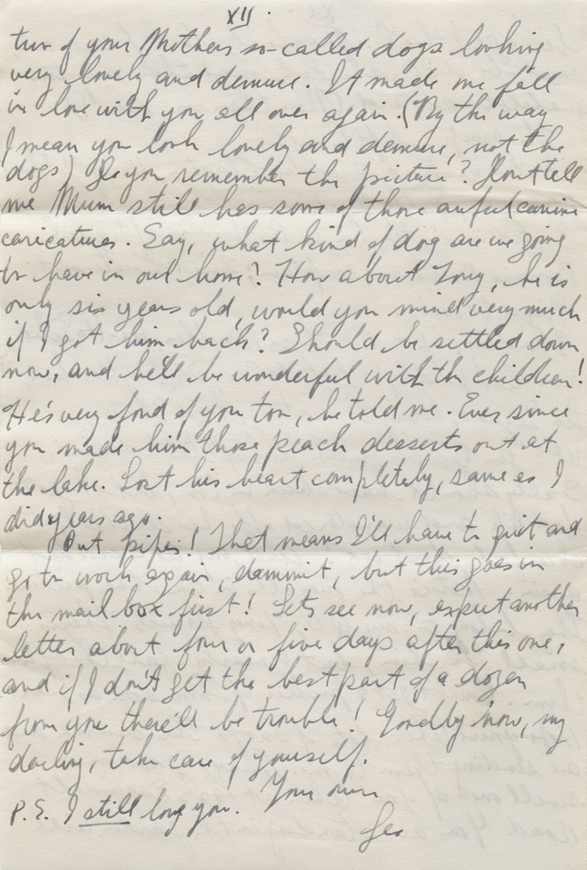 XII.
two of your Mothers so-called dogs looking
very lovely and demure. It made me fall
in love with you all over again. (By the way
I mean you look lovely and demure, not the
dogs) Do you remember the picture? Dont tell
me Mum still has some of those awful canine
caricatures. Say, what kind of dog are we going
to have in our home? How about Tony, he is
only six years old, would you mind very much
if I got him back? Should be settled down
now, and he'll be wonderful with th children!
He's very fond of you too, he told me. Ever since
you made him those peach desserts out at
the lake. Lost his heart completely, same as I
did years ago.
Out pipes! That means I'll have to quit and
go to work again, dammit, but this goes in
the mail box first! Lets see now, expect another
letter about four or five days after this one,
and if I don't get the best part of a dozen
from you there'll be trouble! Goodby now, my
darling, take care of yourself.
Your own
P.S. I still love you.
Geo